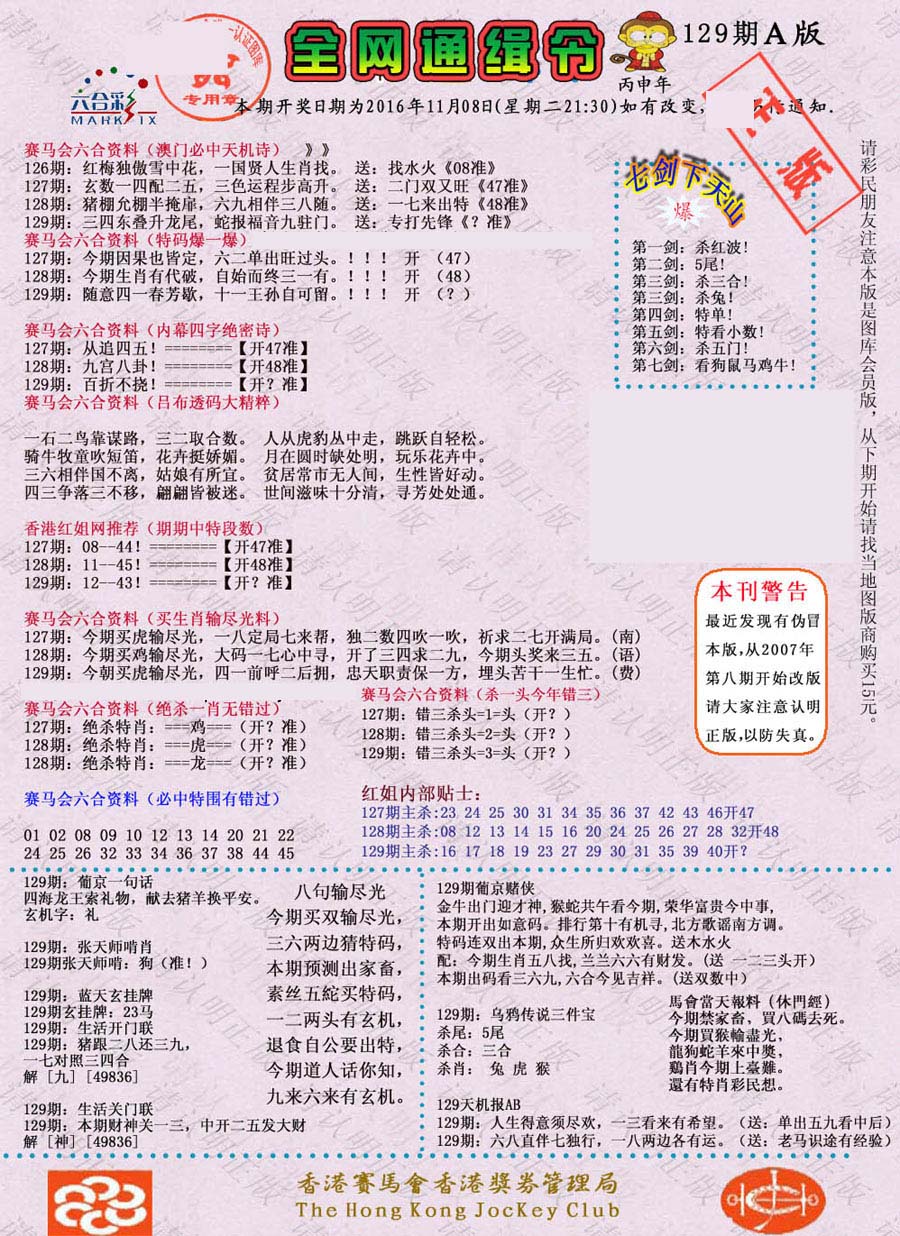 全网通缉令
129期A版
丙申年
认证图库
专用章
六合彩
MARK SIX
本期开奖日期为2016年11月08日(星期二21:30)如有改变,
通知.
版
请彩民朋友注意本版是图库会员版，从下期开始请找当地图版商购买15元。
赛马会六合资料（澳门必中天机诗） 》》
126期：红梅独傲雪中花，一国贤人生肖找。 送：找水火《08准》
127期：玄数一四配二五，三色运程步高升。 送：二门双又旺《47准》
128期：猪棚允棚半掩扉，六九相伴三八随。 送：一七来出特《48准》
129期：三四东叠升龙尾，蛇报福音九驻门。 送：专打先锋《？准》
赛马会六合资料（特码爆一爆）
127期：今期因果也皆定，六二单出旺过头。！！！ 开 （47）
128期：今期生肖有代破，自始而终三一有。！！！ 开 （48）
129期：随意四一春芳歇，十一王孙自可留。！！！ 开 （？）
七剑下天山
爆
第一剑：杀红波！
第二剑：5尾！
第三剑：杀三合！
第三剑：杀兔！
第四剑：特单！
第五剑：特看小数！
第六剑：杀五门！
第七剑：看狗鼠马鸡牛！
赛马会六合资料（内幕四字绝密诗）
127期：从追四五！========【开47准】
128期：九宫八卦！========【开48准】
129期：百折不挠！========【开？准】
赛马会六合资料（吕布透码大精粹）
一石二鸟靠谋路，三二取合数。 人从虎豹丛中走，跳跃自轻松。
骑牛牧童吹短笛，花卉挺娇媚。 月在圆时缺处明，玩乐花卉中。
三六相伴国不离，姑娘有所宜。 贫居常市无人间，生性皆好动。
四三争落三不移，翩翩皆被迷。 世间滋味十分清，寻芳处处通。
香港红姐网推荐（期期中特段数）
127期：08--44！========【开47准】
128期：11--45！========【开48准】
129期：12--43！========【开？准】
本刊警告
最近发现有伪冒
本版,从2007年
第八期开始改版
请大家注意认明
正版,以防失真。
赛马会六合资料（买生肖输尽光料）
127期：今期买虎输尽光，一八定局七来帮，独二数四吹一吹，祈求二七开满局。(南)
128期：今期买鸡输尽光，大码一七心中寻，开了三四求二九，今期头奖来三五。(语)
129期：今朝买虎输尽光，四一前呼二后拥，忠天职责保一方，埋头苦干一生忙。(费)
赛马会六合资料（绝杀一肖无错过）
127期：绝杀特肖：===鸡===（开？准）
128期：绝杀特肖：===虎===（开？准）
129期：绝杀特肖：===龙===（开？准）
赛马会六合资料（杀一头今年错三）
127期：错三杀头=1=头（开？）
128期：错三杀头=2=头（开？）
129期：错三杀头=3=头（开？）
赛马会六合资料（必中特围有错过）
01 02 08 09 10 12 13 14 20 21 22
24 25 26 32 33 34 36 37 38 44 45
红姐内部贴士：
127期主杀:23 24 25 30 31 34 35 36 37 42 43 46开47
128期主杀:08 12 13 14 15 16 20 24 25 26 27 28 32开48
129期主杀:16 17 18 19 23 27 29 30 31 35 39 40开?
129期：葡京一句话
四海龙王索礼物，献去猪羊换平安。
玄机字：礼
129期：张天师啃肖
129期张天师啃：狗（准！）
129期：蓝天玄挂牌
129期玄挂牌：23马
129期：生活开门联
129期：猪跟二八还三九，
一七对照三四合
解［九］[49836]
129期：生活关门联
129期：本期财神关一三，中开二五发大财
解［神］[49836]
八句输尽光
今期买双输尽光，
三六两边猜特码，
本期预测出家畜，
素丝五紽买特码，
一二两头有玄机，
退食自公要出特，
今期道人话你知，
九来六来有玄机。
129期葡京赌侠
金牛出门迎才神,猴蛇共午看今期,荣华富贵今中事,
本期开出如意码。排行第十有机寻,北方歌谣南方调。
特码连双出本期,众生所归欢欢喜。送木水火
配：今期生肖五八找,兰兰六六有财发。(送 一二三头开)
本期出码看三六九,六合今见吉祥。(送双数中)
129期：乌鸦传说三件宝
杀尾：5尾
杀合：三合
杀肖： 兔 虎 猴
馬會當天報料（休門經）
今期禁家畜，買八碼去死。
今期買猴輸盡光，
龍狗蛇羊來中獎，
鷄肖今期上臺難。
還有特肖彩民想。
129天机报AB
129期：人生得意须尽欢，一三看来有希望。（送：单出五九看中后）
129期：六八直伴七独行，一八两边各有运。（送：老马识途有经验）
香港賽馬會香港獎券管理局
The Hong Kong JocKey Club